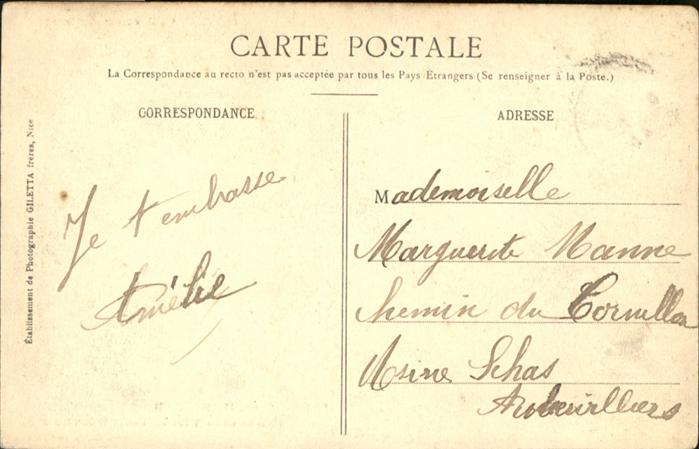 CARTE POSTALE
La Correspondance au recto n'est pas acceptée par tous les Pays Etrangers (Se renseigner à la Poste.)
CORRESPONDANCE
Je t'embrasse
Amélie
ADRESSE
Mademoiselle
Marguerite Manne
Chemin du Cornillon
Usine Schas
Aubervilliers
Établissement de Photographie GILETTA frères, Nice